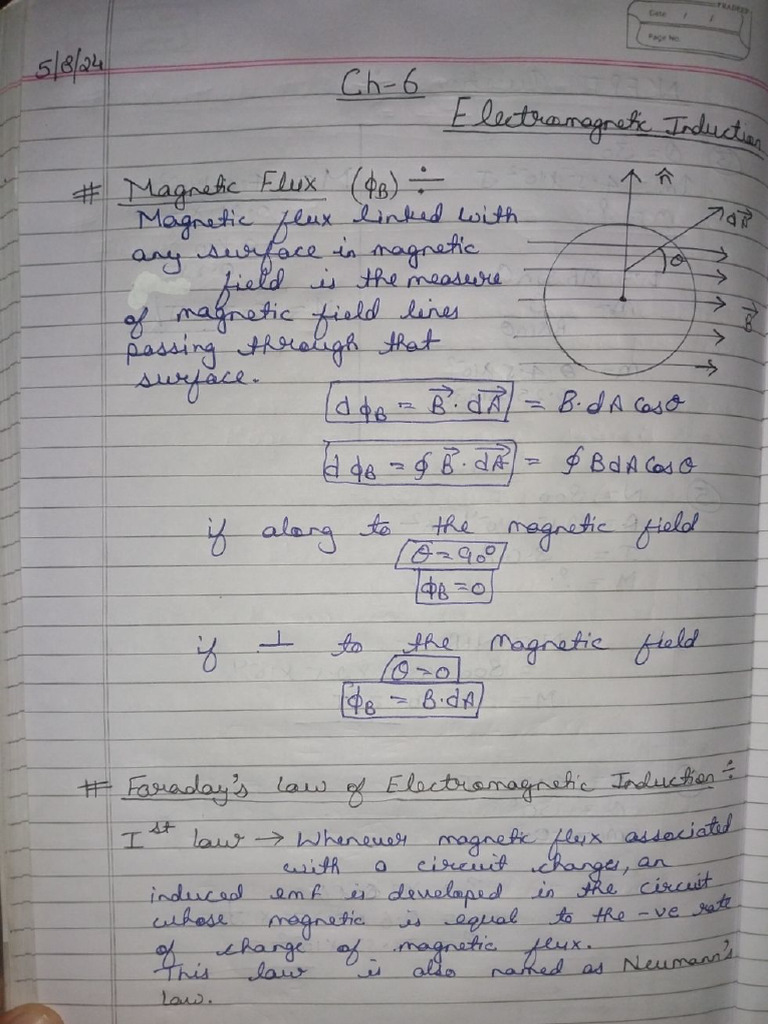 Date / /
Page No.
5/8/24
Ch-6
Electromagnetic Induction
# Magnetic Flux (ϕB) ÷
Magnetic flux linked with
any surface in magnetic
field is the measure
of magnetic field lines
passing through that
surface.
n̂
dA⃗
θ
B⃗
dϕB = B⃗ · dA⃗ = B·dA Cosθ
dϕB = ∮ B⃗ · dA⃗ = ∮ BdA Cosθ
if along to the magnetic field
θ = 90°
ϕB = 0
if ⊥ to the magnetic field
θ = 0
ϕB = B·dA
# Faraday's law of Electromagnetic Induction ÷
Ist law → Whenever magnetic flux associated
with a circuit changes, an
induced emf is developed in the circuit
whose magnetic is equal to the -ve rate
of change of magnetic flux.
This law is also named as Neumann's
law.